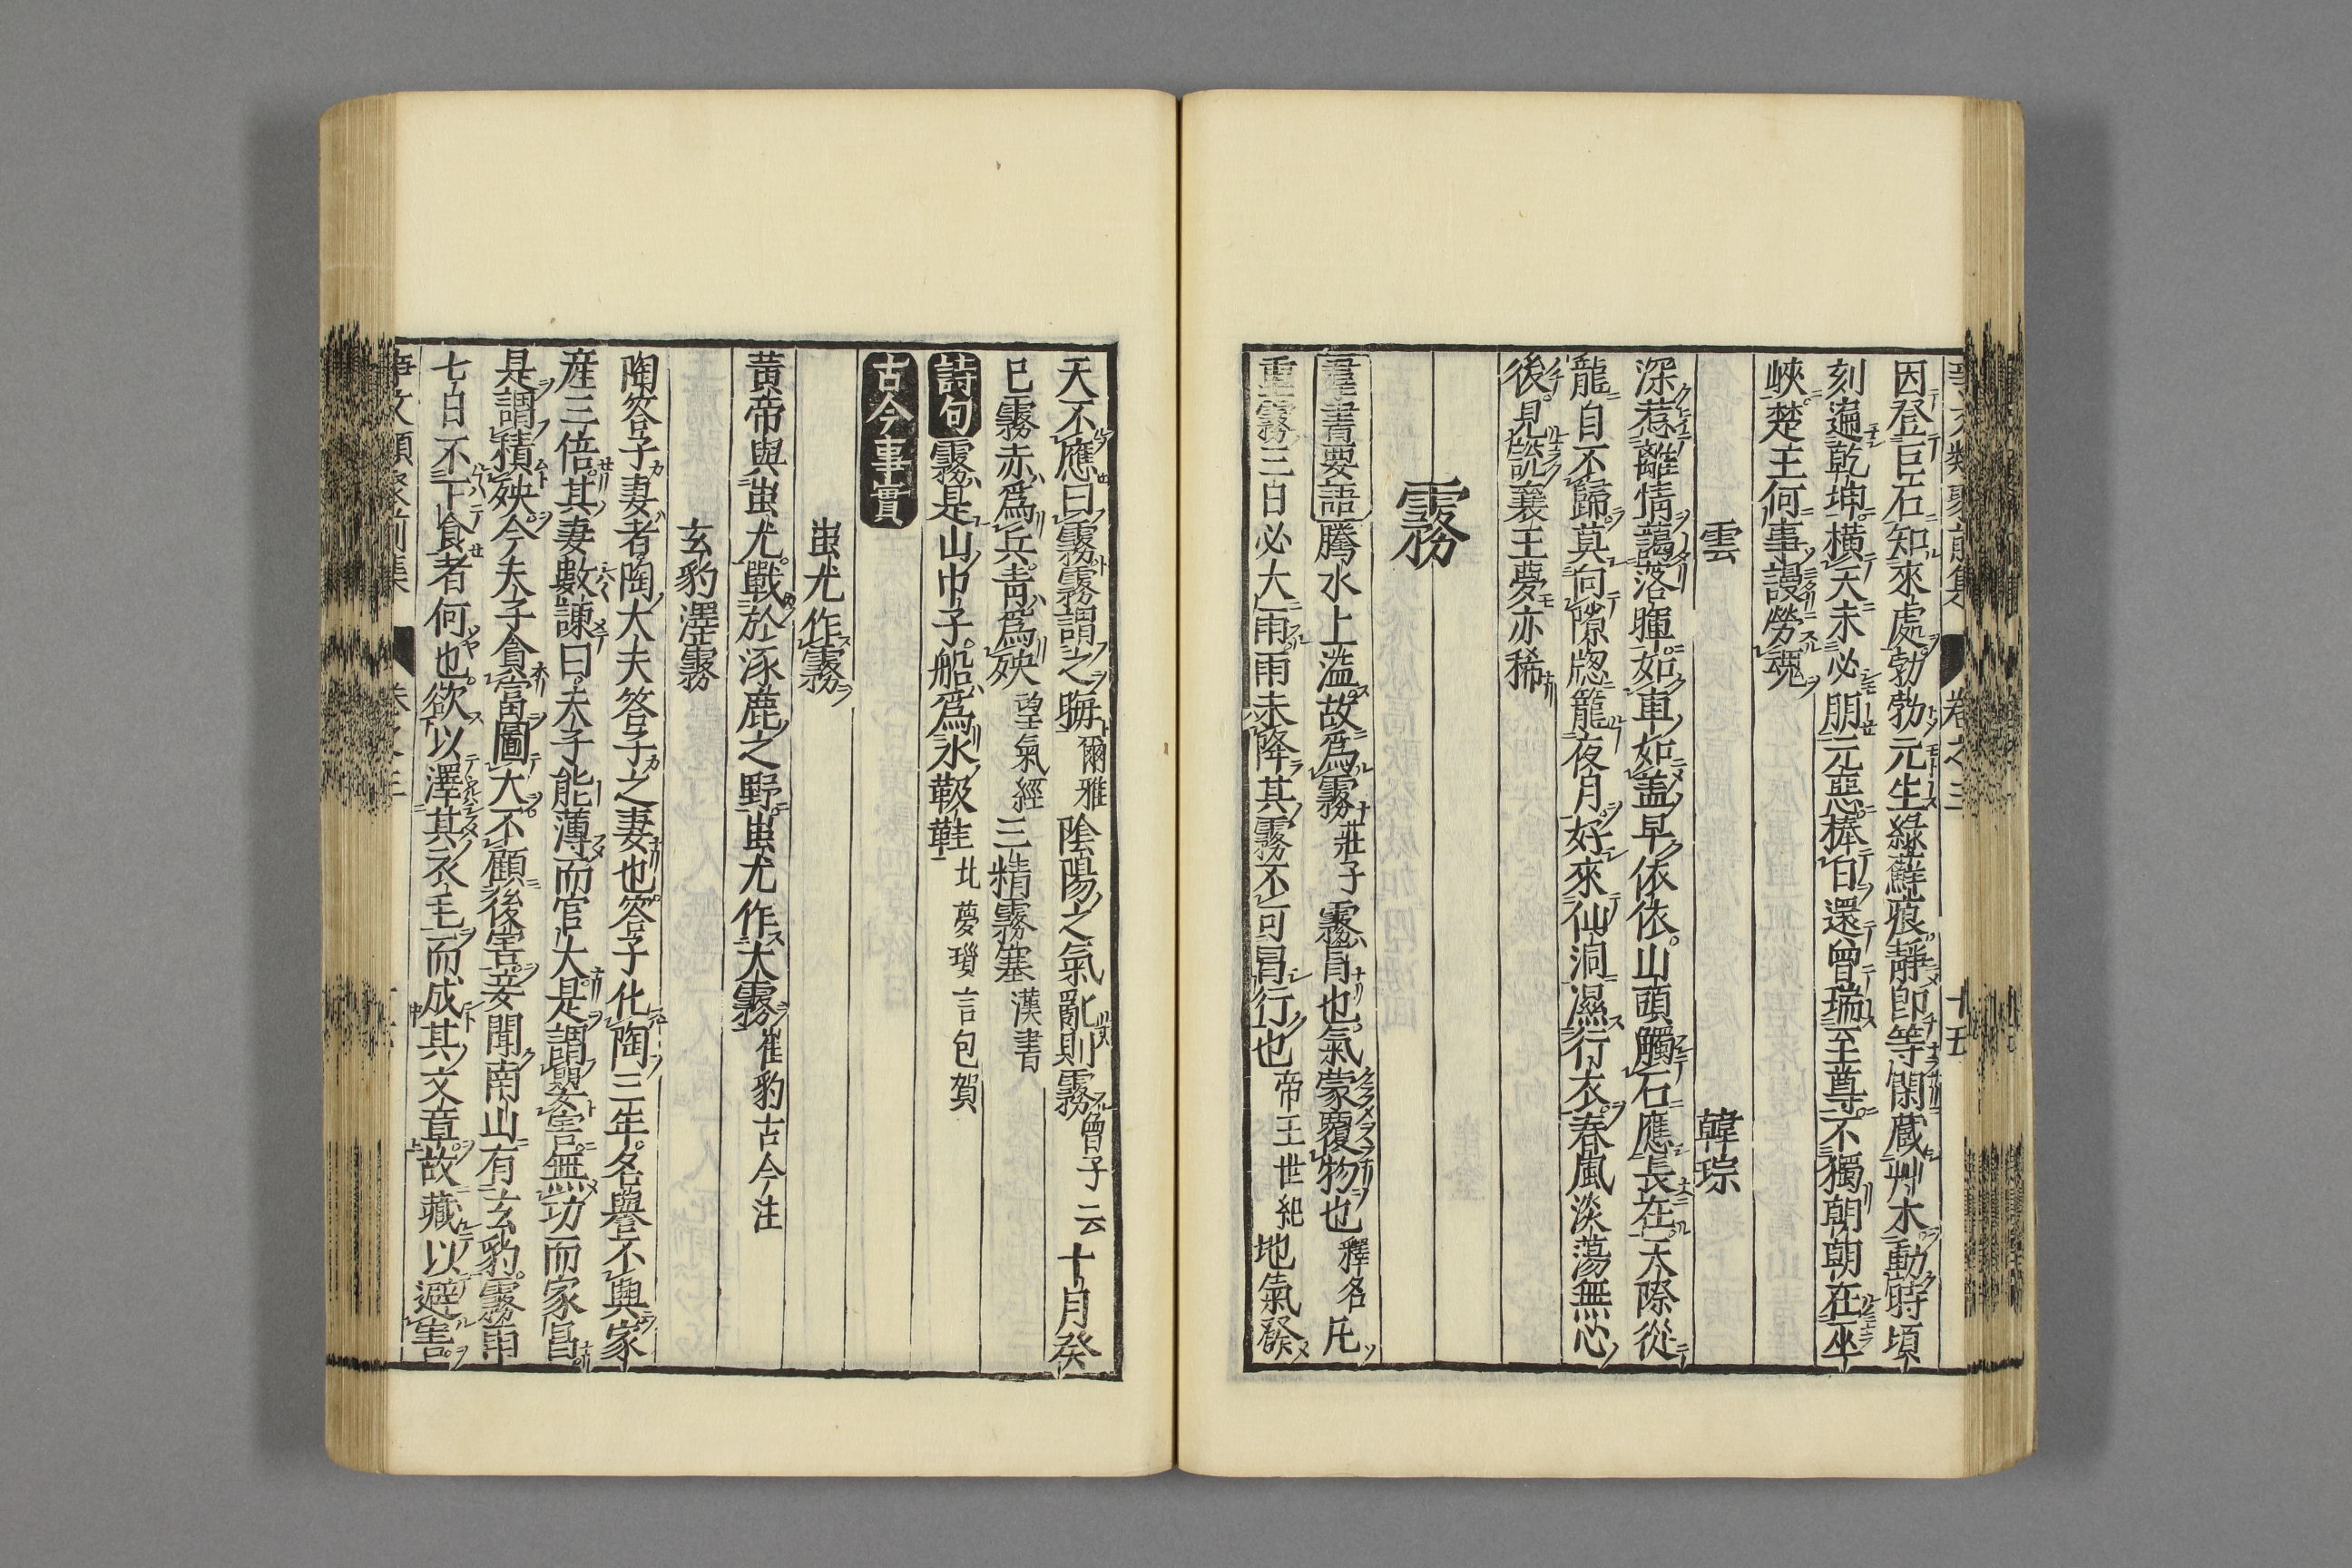 事文類聚前集 卷之三 十五
因登巨石知來處勃勃元生綠蘚痕靜即等閑藏艸木動時頃
刻遍乾坤橫天未必朋元惡捧日還曾瑞至尊不獨朝朝在巫
峽楚王何事謾勞魂
雲 韓琮
深惹離情藹落暉如車如盖早依依山頭觸石應長在天際從
龍自不歸莫向隙窓籠夜月好來仙洞濕行衣春風淡蕩無心
後見說襄王夢亦稀
霧
羣書要語騰水上溢故爲霧莊子霧冐也氣蒙覆物也釋名凡
重霧三日必大雨雨未降其霧不可冐行也帝王世紀地氣發
天不應曰霧霧謂之晦爾雅陰陽之氣亂則霧曾子云十月癸
巳霧赤爲兵靑爲殃望氣經三精霧塞漢書
詩句霧是山巾子船爲水靸鞋北夢瑣言包賀
古今事實
蚩尤作霧
黃帝與蚩尤戰於涿鹿之野蚩尤作大霧崔豹古今注
玄豹澤霧
陶答子妻者陶大夫答子之妻也答子化陶三年名譽不興家
産三倍其妻數諫曰夫子能薄而官大是謂嬰害無功而家昌
是謂積殃今夫子貪富圖大不顧後害妾聞南山有玄豹霧雨
七日不下食者何也欲以澤其衣毛而成其文章故藏以避害
事文類聚前集 卷之三